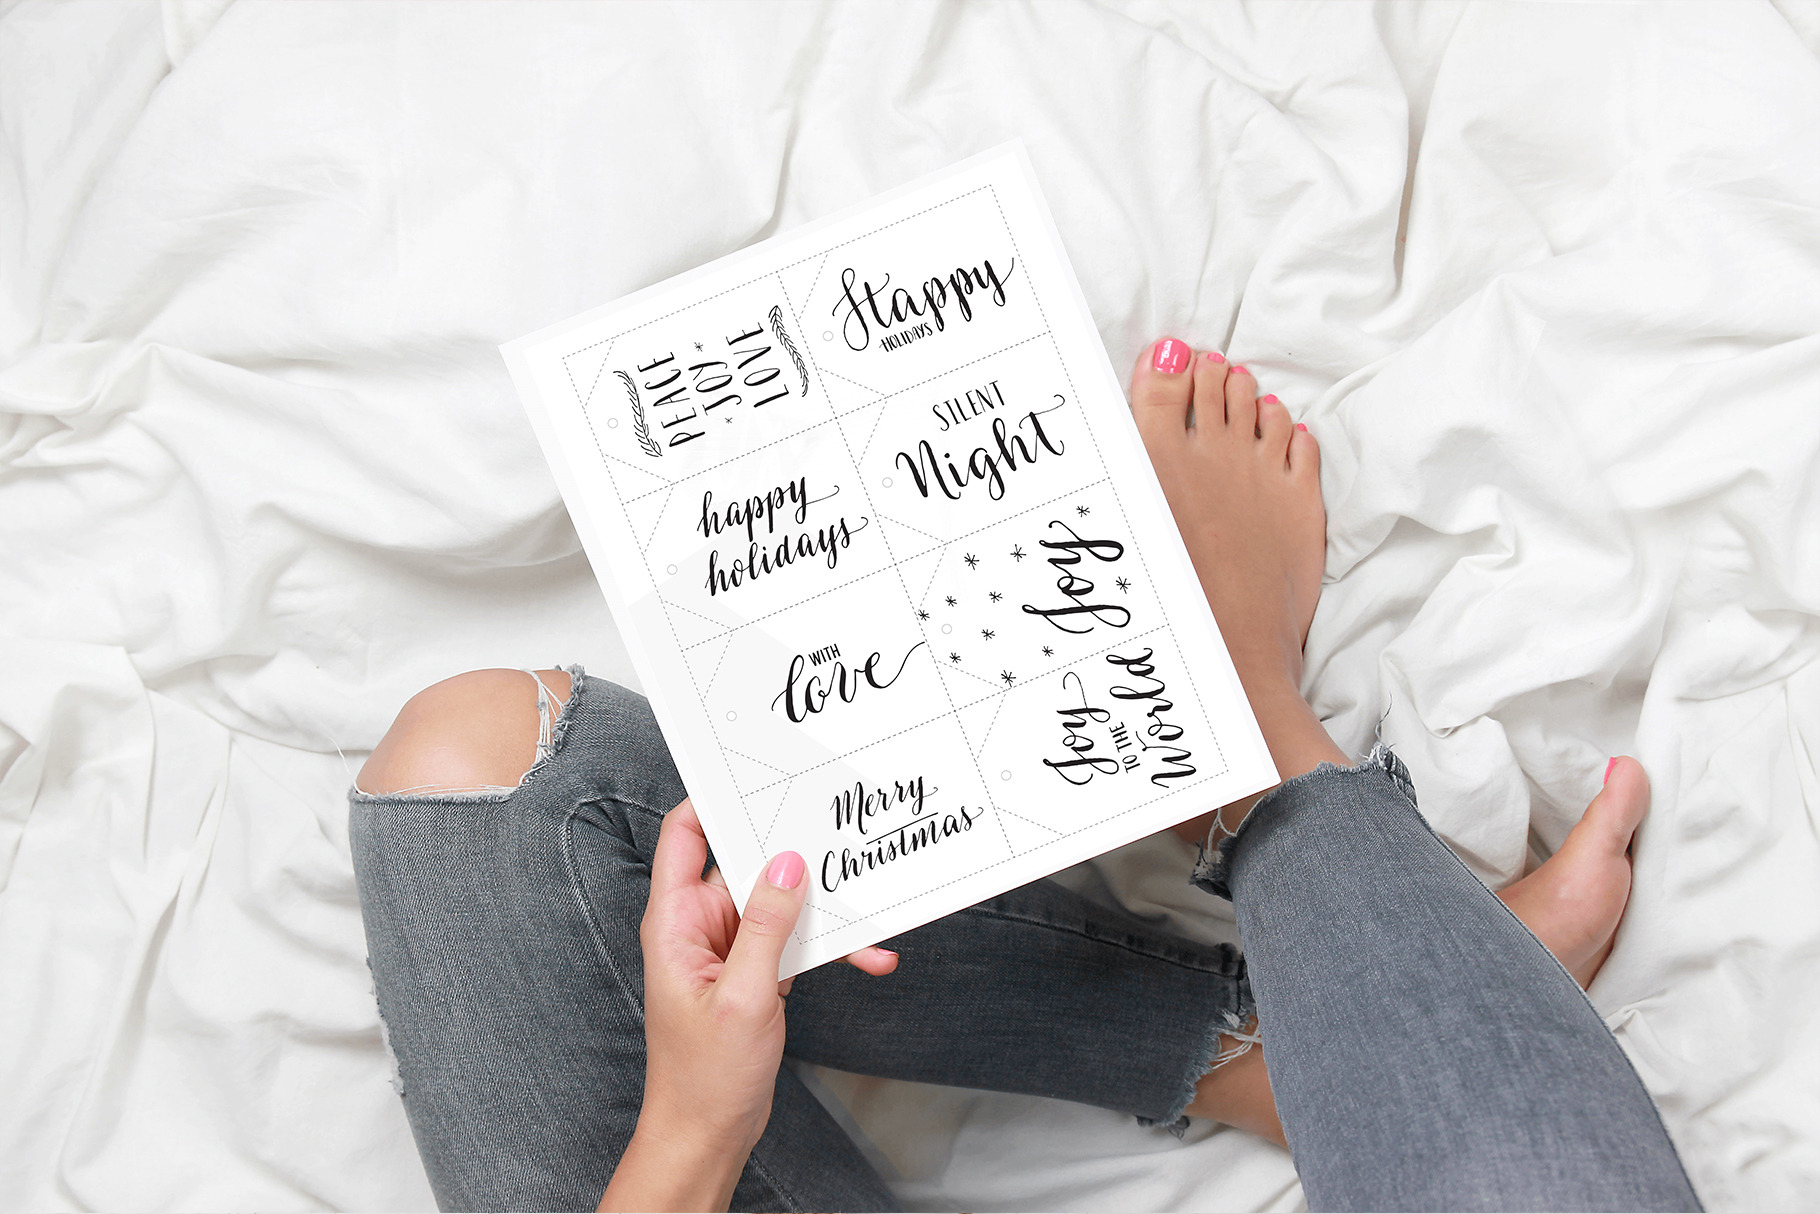 PEACE
JOY
LOVE
Happy
HOLIDAYS
happy
holidays
SILENT
Night
WITH
love
Joy
Merry
Christmas
Joy
TO THE
World